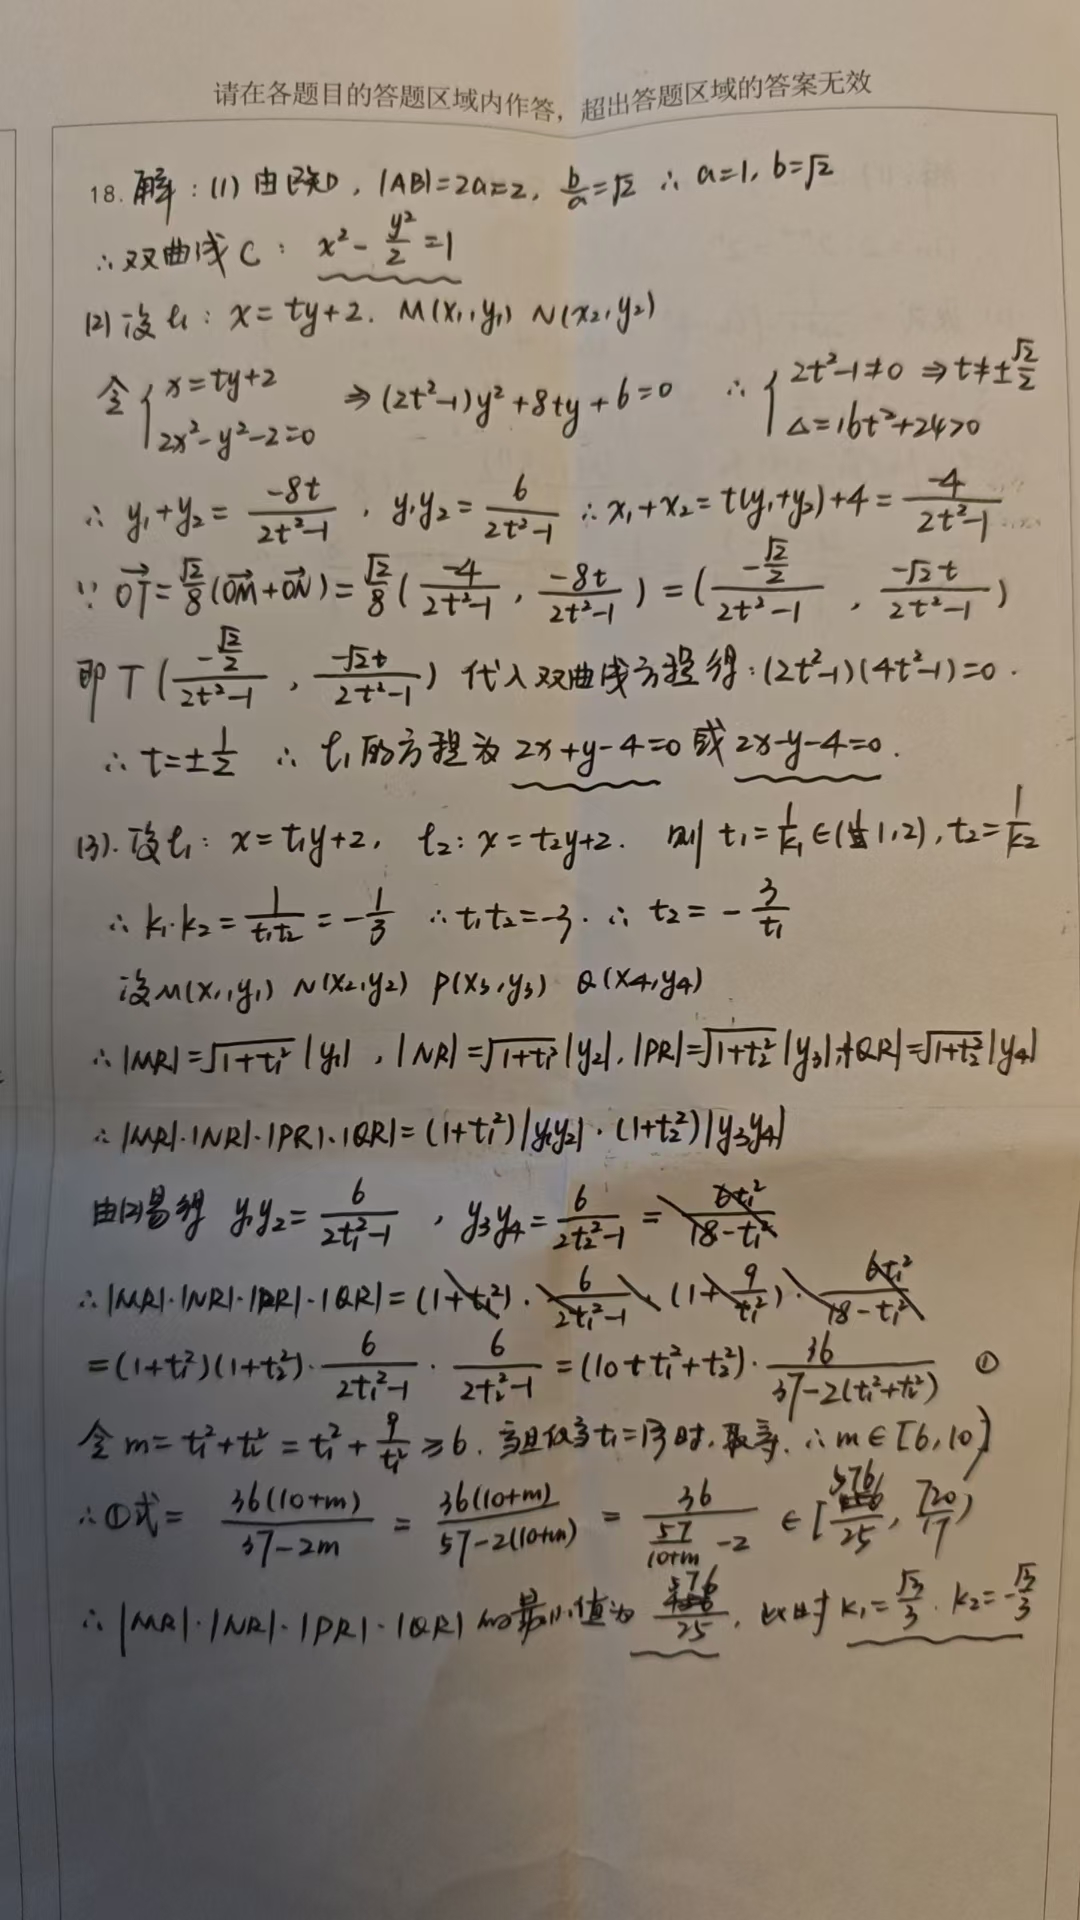 请在各题目的答题区域内作答，超出答题区域的答案无效
18. 解：(1) 由已知，|AB|=2a=2，b/a=√2 ∴ a=1, b=√2
∴双曲线C： x²-y²/2=1
(2) 设l₁：x=ty+2. M(x₁,y₁) N(x₂,y₂)
令{x=ty+2 2x²-y²-2=0 ⇒(2t²-1)y²+8ty+6=0 ∴{2t²-1≠0 ⇒t≠±√2/2 Δ=16t²+24>0
∴ y₁+y₂=-8t/(2t²-1) , y₁y₂=6/(2t²-1) ∴x₁+x₂=t(y₁+y₂)+4=-4/(2t²-1)
∵ OT=√2/8(OM+ON)=√2/8(-4/(2t²-1) , -8t/(2t²-1))=((-√2/2)/(2t²-1) , -√2t/(2t²-1))
即T((-√2/2)/(2t²-1) , -√2t/(2t²-1)) 代入双曲线方程得：(2t²-1)(4t²-1)=0.
∴ t=±1/2 ∴ l₁的方程为2x+y-4=0或2x-y-4=0.
(3). 设l₁：x=t₁y+2, l₂：x=t₂y+2. 则t₁=1/k₁∈(1,2), t₂=1/k₂
∴ k₁·k₂=1/(t₁t₂)=-1/3 ∴t₁t₂=-3. ∴ t₂=-3/t₁
设M(x₁,y₁) N(x₂,y₂) P(x₃,y₃) Q(x₄,y₄)
∴|MR|=√(1+t₁²)|y₁| , |NR|=√(1+t₁²)|y₂|, |PR|=√(1+t₂²)|y₃|, |QR|=√(1+t₂²)|y₄|
∴|MR|·|NR|·|PR|·|QR|=(1+t₁²)|y₁y₂|·(1+t₂²)|y₃y₄|
由(2)易得 y₁y₂=6/(2t₁²-1) , y₃y₄=6/(2t₂²-1)=6t₁²/(18-t₁²)
∴|MR|·|NR|·|PR|·|QR|=(1+t₁²)·6/(2t₁²-1)·(1+9/t₁²)·6t₁²/(18-t₁²)
=(1+t₁²)(1+t₂²)·6/(2t₁²-1)·6/(2t₂²-1)=(10+t₁²+t₂²)·36/(37-2(t₁²+t₂²)) ①
令m=t₁²+t₂²=t₁²+9/t₁²≥6. 当且仅当t₁=√3时,取等. ∴m∈[6,10)
∴①式=36(10+m)/(37-2m)=36(10+m)/(57-2(10+m))=36/(57/(10+m)-2) ∈[576/25, 720/17)
∴|MR|·|NR|·|PR|·|QR|的最小值为576/25, 此时k₁=√3/3. k₂=-√3/3